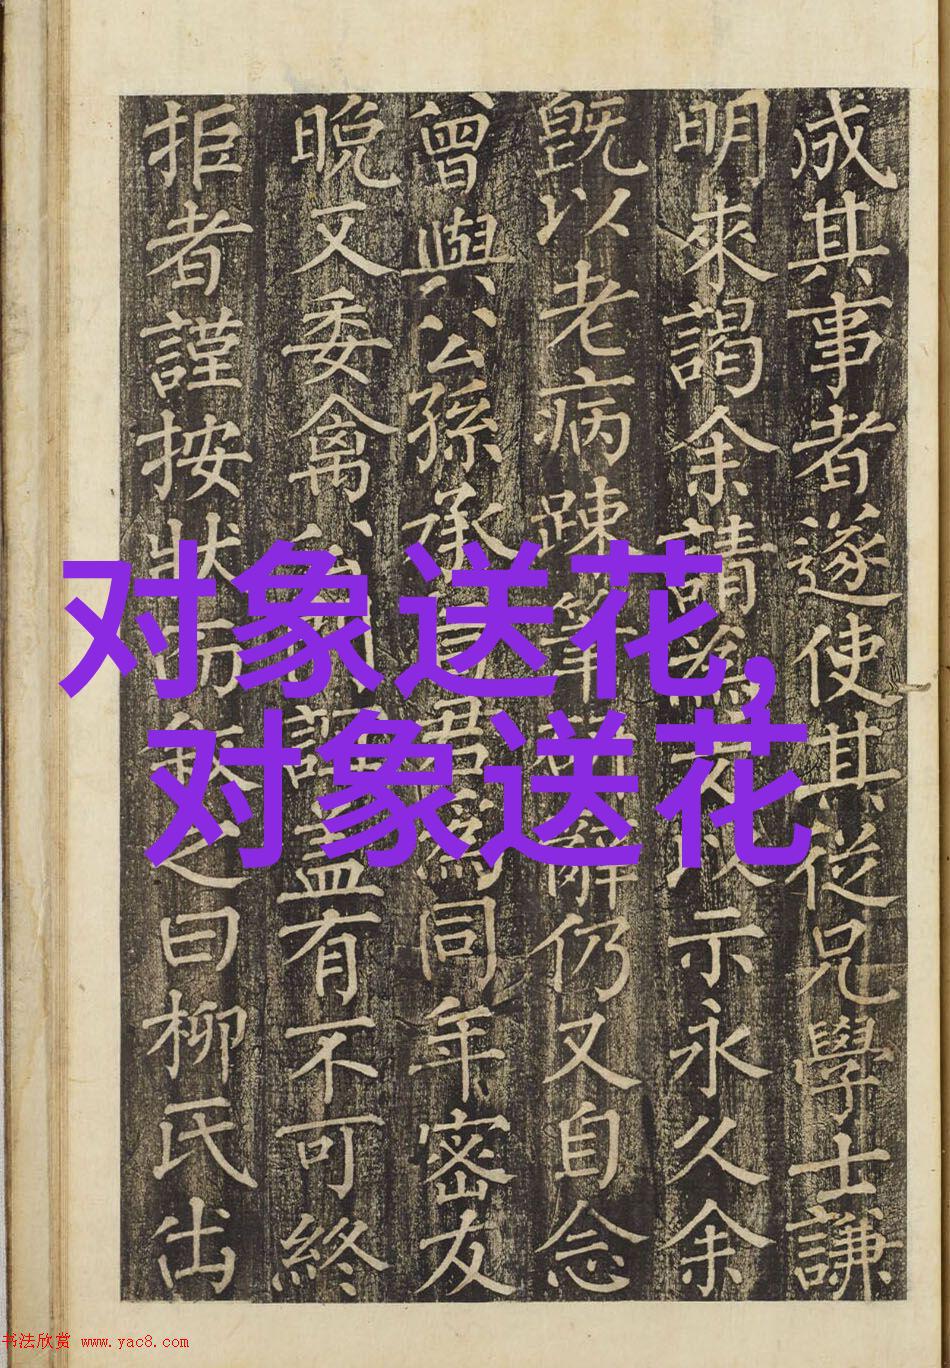 成其事者遂使其從兄學士謙
明來謁余請為文以示永久余
既以老病疎筆研辭仍又自念
曾與公孫承旨君為同年密友
晚又委禽誼蓋有不可終
拒者謹按狀而叙之曰柳氏出
对象送花,
对象送花
书法欣赏 www.yac8.com